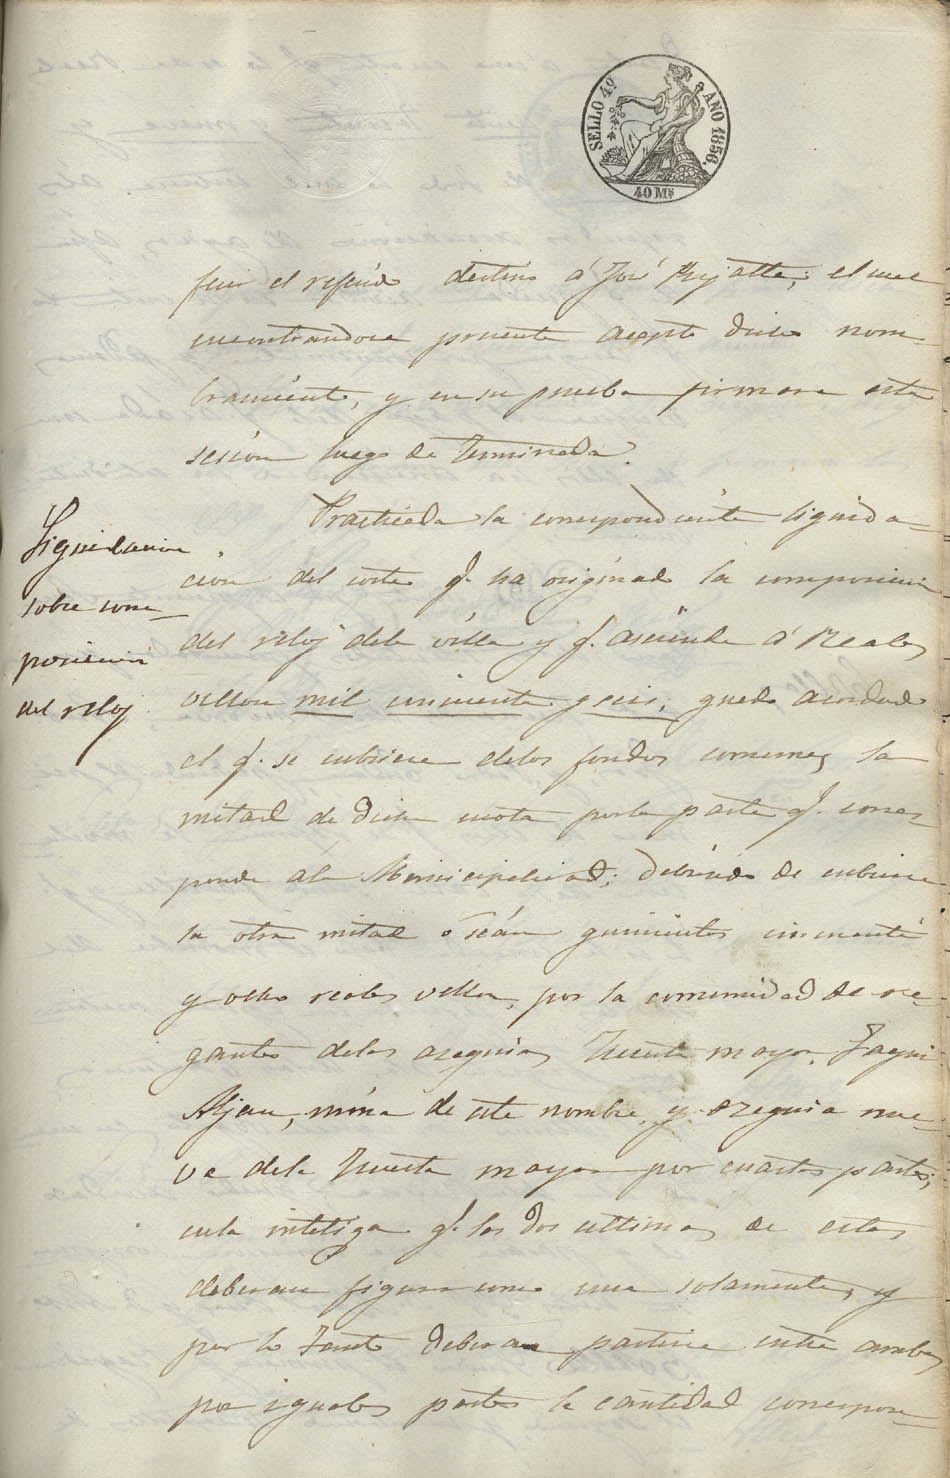 SELLO 4º AÑO 1856.
40 Ms
fuir el referido destino á José Myatte; el cual
encontrandose presente acepto dicho nom-
bramiento, y en su prueba firmara esta
sesión luego de terminada.
Liquidacion
sobre com-
posicion
del reloj
Practicada la correspondiente liquida-
cion del coste q.e ha originado la composicion
del reloj dela villa y q.e asciende á Reales
vellon mil cincuenta y seis, quedo acordado
el q.e se cubriese delos fondos comunes la
mitad de dicha cuota por la parte q.e corres-
ponde ála Municipalidad; debiendo de cubrirse
la otra mitad ó séan quinientos cincuenta
y ocho reales vellon, por la comunidad de re-
gantes delas azequias Huerta mayor, Jaqui
Aljau, mina de este nombre, y azequia nue-
va dela Huerta mayor por cuartas partes;
enla inteliga q.e las dos ultimas de estas
deberan figurar como una solamente, y
por lo tanto deberan partirse entre ambas
por iguales partes la cantidad correspon-